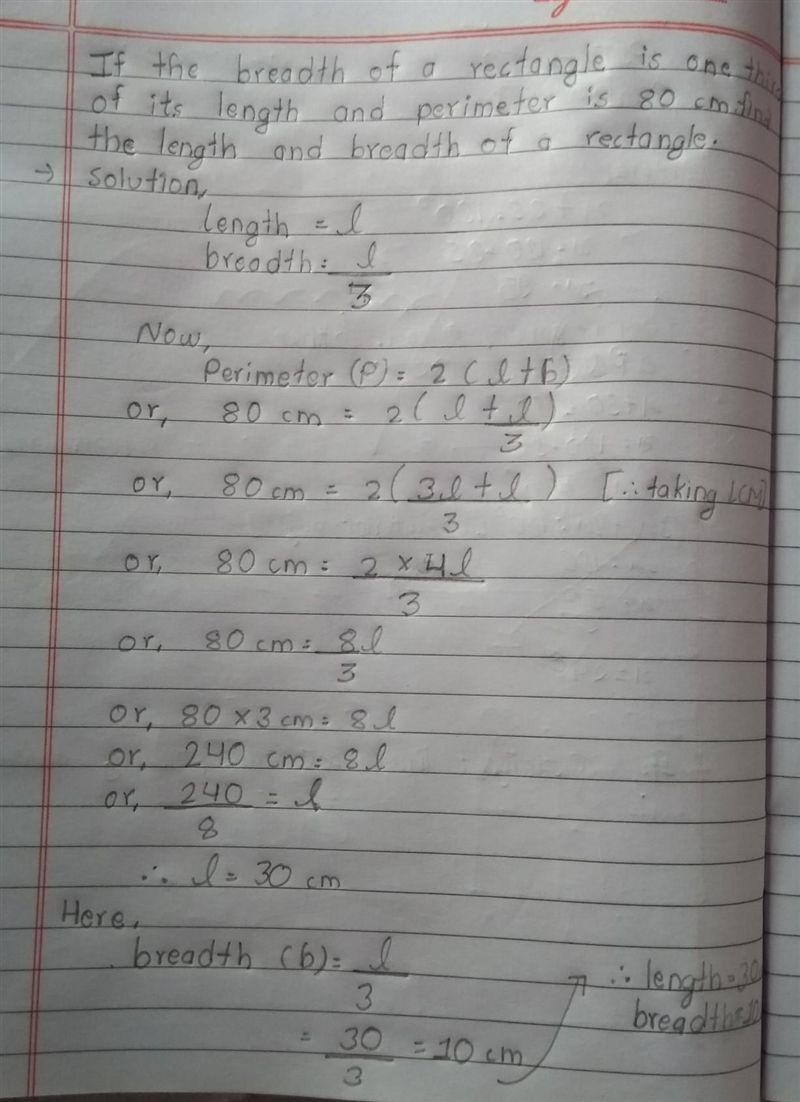 If the breadth of a rectangle is one third
of its length and perimeter is 80 cm find
the length and breadth of a rectangle.
→ Solution,
length = l
breadth = l/3
Now,
Perimeter (P) = 2 (l+b)
or, 80 cm = 2( l + l/3 )
or, 80 cm = 2( 3l + l / 3 ) [∴ taking LCM]
or, 80 cm = 2 × 4l / 3
or, 80 cm = 8l/3
or, 80 × 3 cm = 8l
or, 240 cm = 8l
or, 240/8 = l
∴ l = 30 cm
Here,
breadth (b) = l/3
= 30/3 = 10 cm
∴ length = 30
breadth = 10